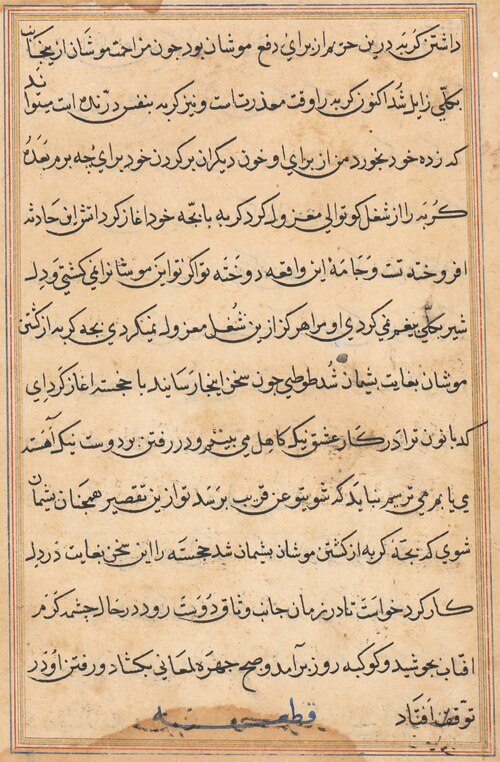 داشتن گربه درین حریم از برای دفع موشان بود جون مزاحمت موشان ازینجانب
بکلی زایل شد اکنون گربه را وقت معذرتست و نیز گربه بنفس درنده است میتواند
که زده خود بخورد من از برای او خون دیگران بر کردن خود برای چه برم بعده
گربه را از شغل کوتوالی معزول کرد گربه با بچه خود اغاز کرد اتش این حادثه
افروخته تست و جامهٔ این واقعه دوخته تو اکر تو این موشانرا نمی کشتی و دل
شیر بکلی بیغم نمی کردی او مرا هرکز ازین شغل معزول نمیکردی بچه گربه از کشتن
موشان بغایت بشیمان شد طوطی جون سخن اینجا رسانید با خجسته اغاز کرد ای
کدبانو من ترا در کار عشق نیک کاهل می بینم و در رفتن بر دوست نیک آهسته
می یابم می ترسم نباید که شوی تو عن قریب برسد تو ازین تقصیر همچنان بشیمان
شوی که بچهٔ گربه از کشتن موشان بشیمان شد خجسته را این سخن بغایت در دل
کار کرد خواست تا در زمان جانب وثاق دوست رود در حال چشمه کرم
افتاب بجوشید و کوکبه روز برآمد و صبح چهره لمعانی بکشاد و رفتن او در
توقف افتاد قطعه